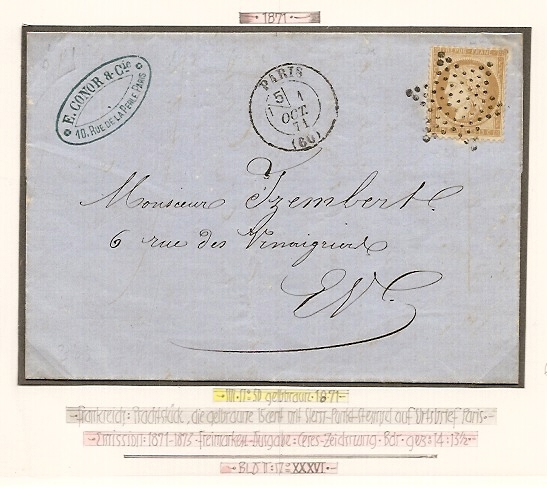 1871
E. CONOR & Cie
10, RUE DE LA PERLE PARIS
PARIS
5E 1
OCT.
71
(60)
REPUB. FRANC.
Monsieur Izembert.
6 rue des Vinaigriers
EV.
MI. N:o 50 gelbbraun · 1871
Frankreich: Prachtstück, die gelbbraune 15cent mit Stern-Punkt-Stempel auf Ortsbrief Paris.
Emission: 1871-1873 Freimarken Ausgabe: Ceres-Zeichnung · Bdr · gez: 14:13½
BLDT: N:o XXXVI